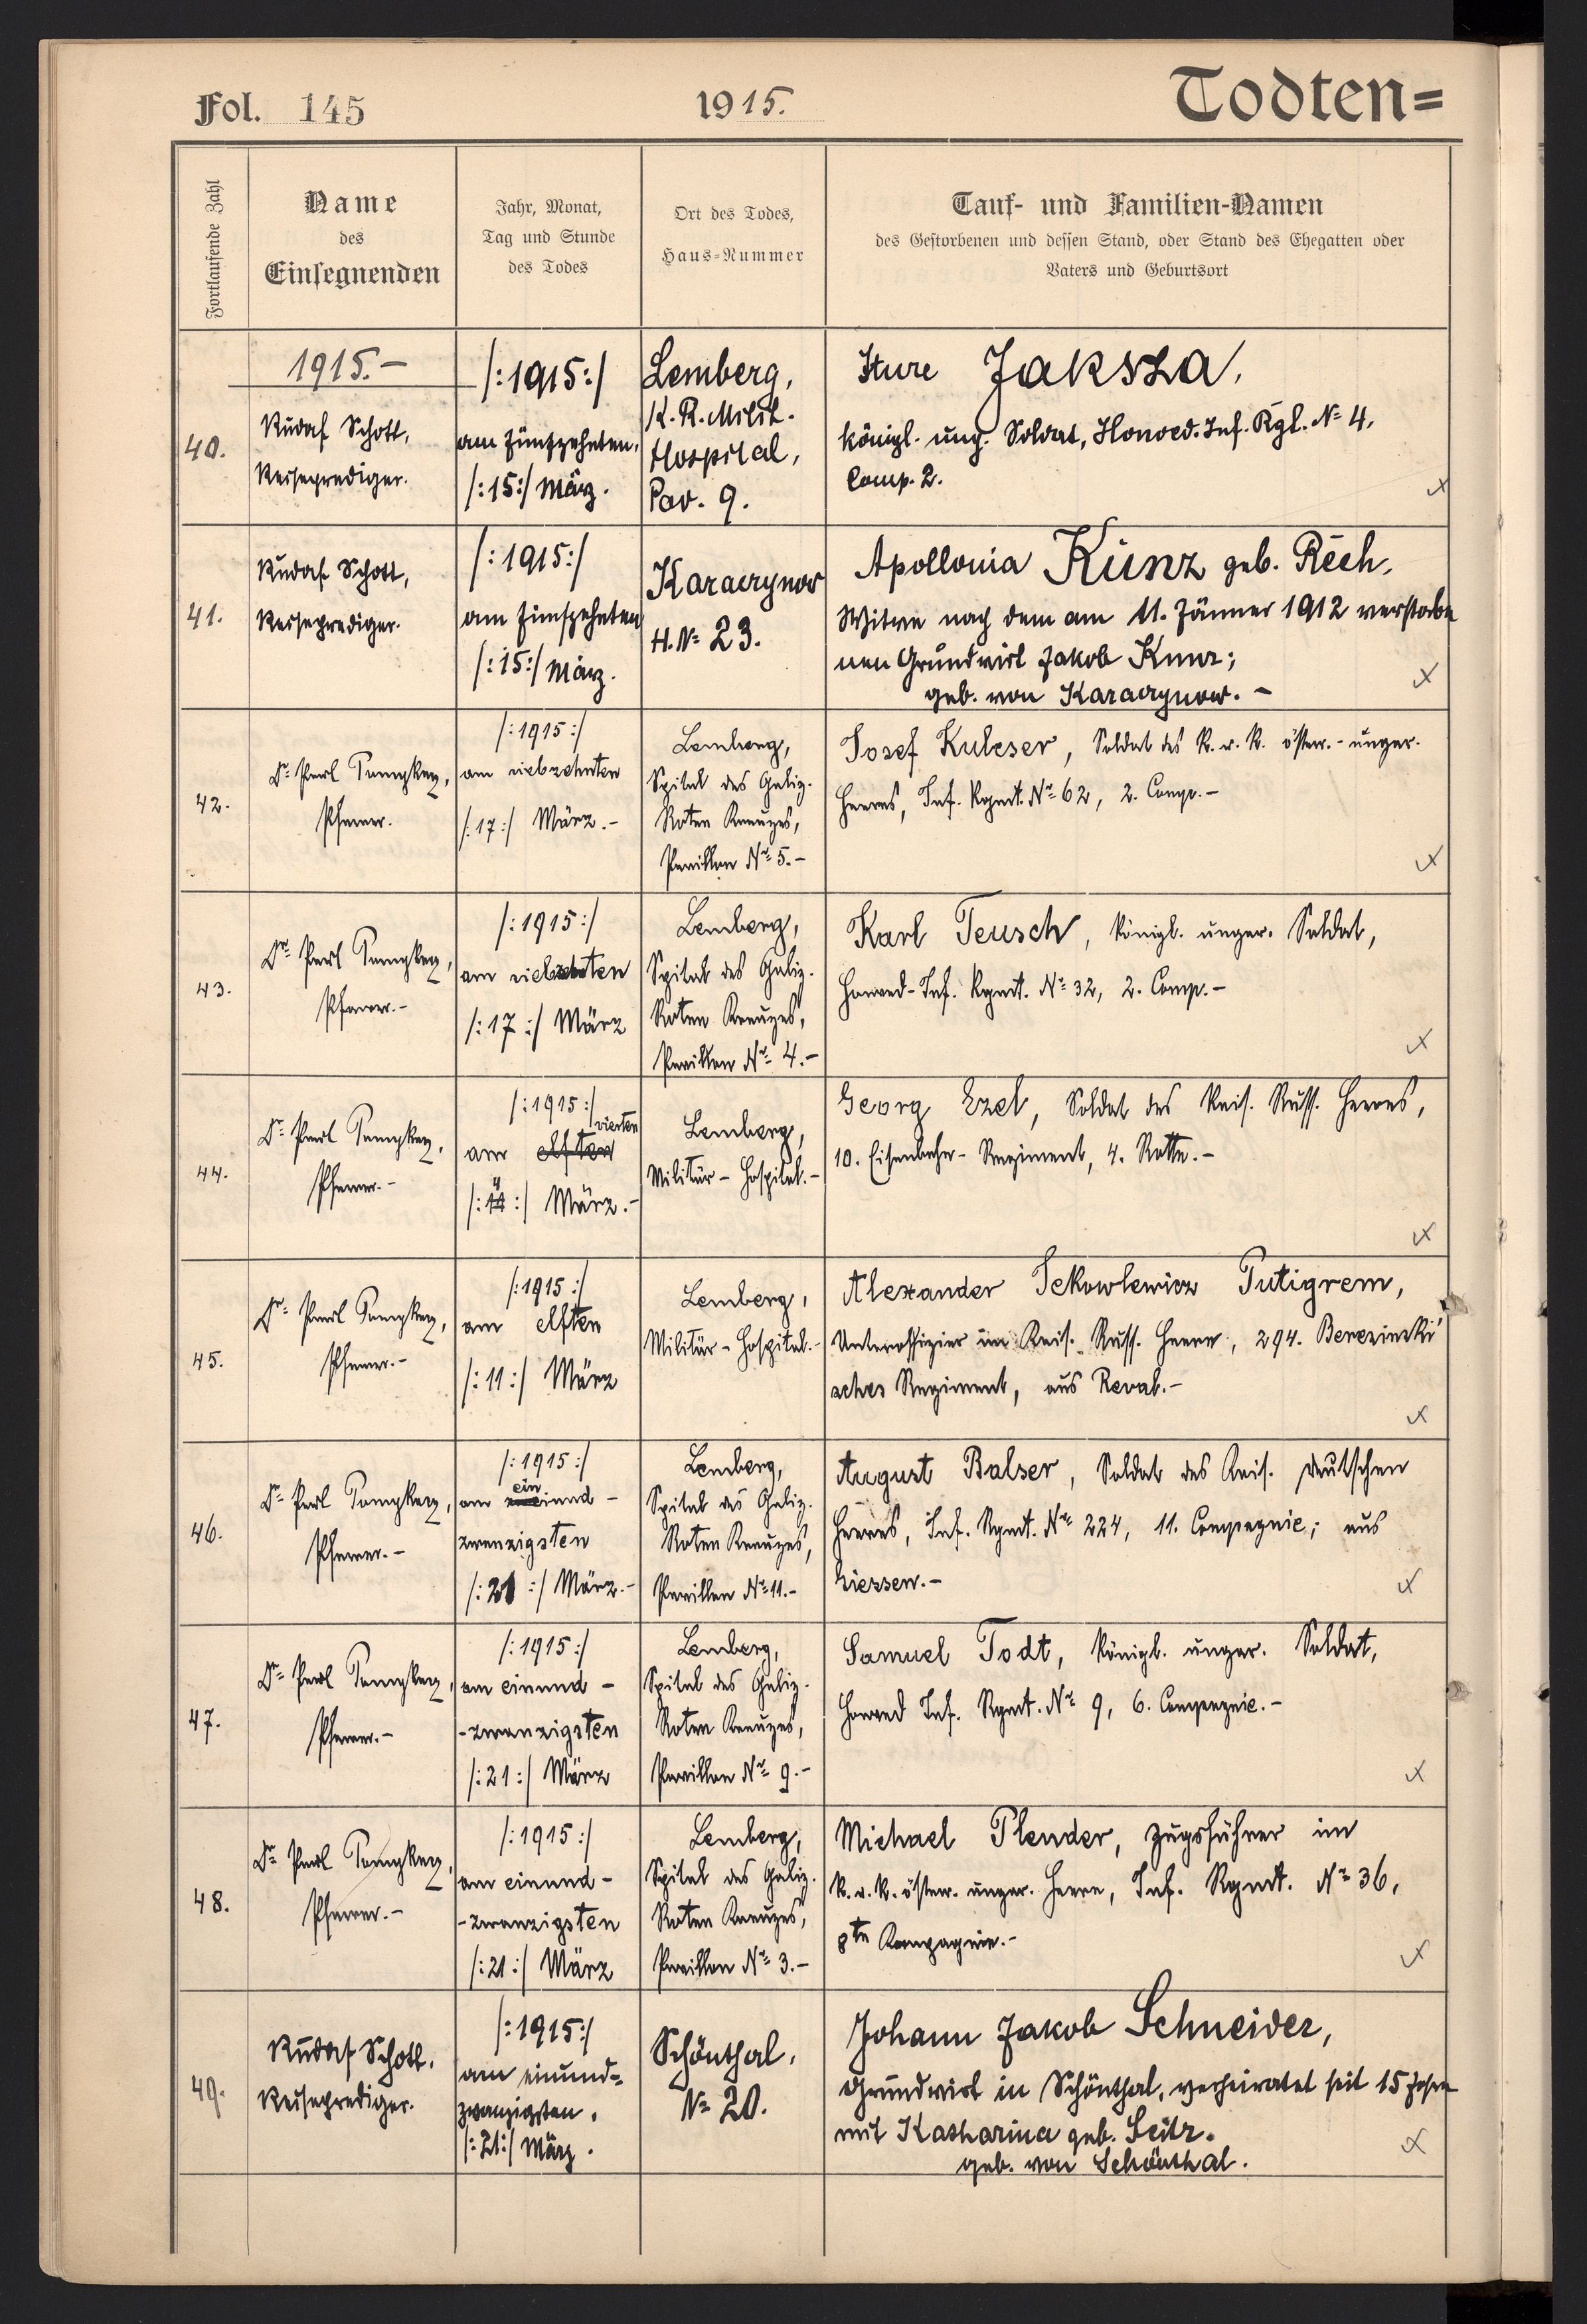 Fol. 145
1915.
Todten=
Fortlaufende Zahl
Name
des
Einsegnenden
Jahr, Monat,
Tag und Stunde
des Todes
Ort des Todes,
Haus-Nummer
Tauf- und Familien-Namen
des Gestorbenen und dessen Stand, oder Stand des Ehegatten oder
Vaters und Geburtsort
1915.-
40.
Rudolf Schott,
Reiseprediger.
/:1915:/
am fünfzehnten,
/:15:/ März.
Lemberg,
K. K. Milit.
Hospital,
Pav. 9.
Iture Jaksza,
königl. ung. Soldat, Honved. Inf. Rgt. No 4,
Comp. 2.
41.
Rudolf Schott,
Reiseprediger.
/:1915:/
am fünfzehnten
/:15:/ März.
Karaczynow
H. No 23.
Apollonia Kunz geb. Rech,
Witwe nach dem am 11. Jänner 1912 verstorbe
nen Grundwirt Jakob Kunz;
geb. von Karaczynow.-
42.
Dr. Paul
Pfarrer.
/:1915:/
am siebzehnten
/:17:/ März.-
Lemberg,
Spital des Galiz.
Roten Kreuzes,
Pavillon No 5.-
Josef Kulcser, Soldat des k. u. k. österr.-ungar.
Heeres, Inf. Rgmt. No 62, 2. Comp.-
43.
Dr. Paul
Pfarrer.-
/:1915:/
am siebzehnten
/:17:/ März
Lemberg,
Spital des Galiz.
Roten Kreuzes,
Pavillon No 4.-
Karl Teusch, königl. ungar. Soldat,
Honved-Inf. Rgmt. No 32, 2. Comp.-
44.
Dr. Paul
Pfarrer.-
/:1915:/
vierten
am elften
/:4:/ März.-
Lemberg,
Militär-Hospital.-
Georg Ezel, Soldat des Kais. Russ. Heeres,
10. Eisenbahn-Regiment, 4. Rotte.-
45.
Dr. Paul
Pfarrer.-
/:1915:/
am elften
/:11:/ März
Lemberg,
Militär-Hospital.-
Alexander Jekowlewicz Putigrem,
Unteroffizier im Kais. Russ. Heere, 294. Berezinski
sches Regiment, aus Reval.-
46.
Dr. Paul
Pfarrer.-
/:1915:/
ein
am und-
zwanzigsten
/:21:/ März.-
Lemberg,
Spital des Galiz.
Roten Kreuzes,
Pavillon No 11.-
August Balser, Soldat des Kais. deutschen
Heeres, Inf. Rgmt. No 224, 11. Compagnie; aus
Giessen.-
47.
Dr. Paul
Pfarrer.-
/:1915:/
am einund-
-zwanzigsten
/:21:/ März
Lemberg,
Spital des Galiz.
Roten Kreuzes,
Pavillon No 9.-
Samuel Todt, königl. ungar. Soldat,
Honved Inf. Rgmt. No 9, 6. Compagnie.-
48.
Dr. Paul
Pfarrer.-
/:1915:/
am einund-
-zwanzigsten
/:21:/ März
Lemberg,
Spital des Galiz.
Roten Kreuzes,
Pavillon No 3.-
Michael Plender, Zugsführer im
k. u. k. österr. ungar. Heere, Inf. Rgmt. No 36,
8te Kompagnie.-
49.
Rudolf Schott,
Reiseprediger.
/:1915:/
am einund-
zwanzigsten,
/:21:/ März.
Schönthal,
No 20.
Johann Jakob Schneider,
Grundwirt in Schönthal, verheiratet seit 15 Jahren
mit Katharina geb. Seitz.
geb. von Schönthal.